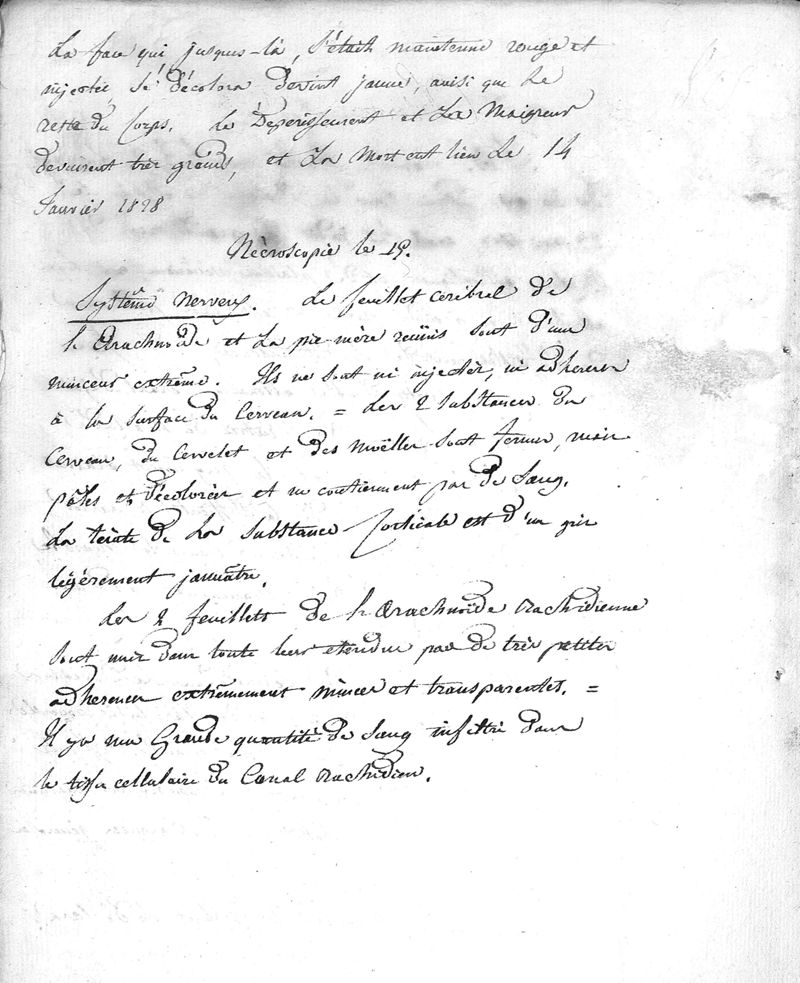 La face qui jusques-là, s'était maintenue rouge et
injectée, se décolora devint jaune, ainsi que le
reste du Corps. Le Dépérissement et La Maigreur
devinrent très grands, et La Mort eut lieu le 14
Janvier 1828
Nécroscopie le 15.
Système Nerveux. Le feuillet cérébral de
l'Arachnoïde et La pie-mère reünis sont d'une
minceur extrême. Ils ne sont ni injectés, ni adhérens
à la surface du Cerveau. = Les 2 substances du
Cerveau, du Cervelet et des Moëlles sont fermes, mais
pâles et décolorées et ne contiennent pas de Sang.
La teinte de La substance Corticale est d'un gris
légèrement jaunâtre.
Les 2 feuillets de l'Arachnoïde rachidienne
sont unis dans toute leur etendue par de très petites
adherences extrêmement minces et transparentes. =
Il y a une Grande quantité de Sang infiltré dans
le tissu cellulaire du Canal rachidien.